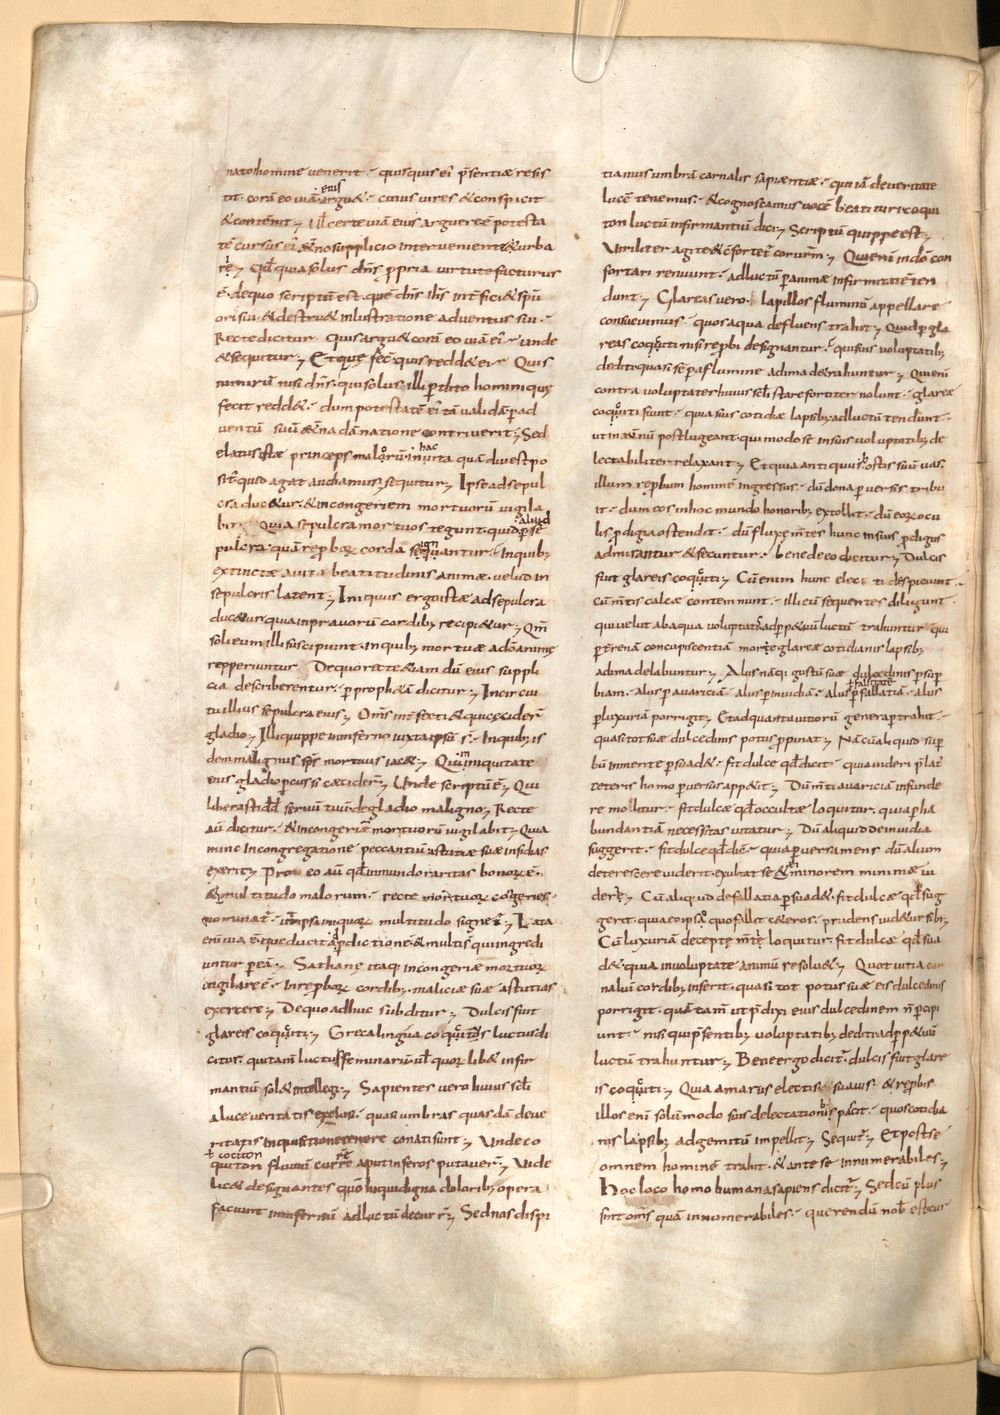 nato homine venerit · quisquis ei p̄sentiae resis
tit · corā eo uiā eius arguet · cuius vires & conspicit
& contēnit; Ul certe uiā eius arguere ē potesta
tē & no supplicio interveniente
r̄e; Qd̄ quia solus dn̄s ꝓpria virtute facturus
ē · de quo scriptū est · quē dn̄s ih̄s interficiet spū
oris sui · & destruet inlustratione adventus sui ·
Recte dicitur quis arguet corā eo uiā ei · unde
& sequitur; Et que fec̄ quis reddet ei · Quis
nimirū nisi dn̄s · qui solus illi hominique
fecit reddet · dum potestatē ei tā validā ꝑ ad
ventū suū & natione contriverit; Sed
elatus iste princeps malorū in hac vita quā diu est po
situs quid agat audiamus; sequitur; Ipse ad sepul
cra ducetur · & in congeriem mortuorū vigila
bit · Quia sepulcra mortuos tegunt · quid aliud ꝑ se
pulcra quā reproborū corda signantur · In quib;
extincta a vita beatitudinis animae · velud in
sepulcris latent; Iniquus ergo iste ad sepulcra
ducetur · quia in pravorū cordib; recipietur; Qm̄
soli eum illi suscipiunt · in quib; mortuae a dō animę
repperiuntur · De quo recte & iam dū eius suppli
cia describerentur · ꝑ prophetā dicitur; In circui
tu illius sepulcra eius; Om̄s interfecti & qui cecider̄
gladio; Illi quippe in inferno iuxta ipsū s̄ · In quib; is
dem malignus sp̄s mortuus iacet; Qui in iniquitate
eius gladio ꝑcussi caecider̄; Unde scriptū ē; Qui
liberasti servum tuū de gladio maligno; Recte
aū dicitur · & in congeriē mortuorū vigilabit; Quia
nunc in congregatione peccantiū astutiae suae insidias
exerit; Pro eo aū qd̄ in mundo raritas bonorū ē ·
& multitudo malorum · recte mortuorū congeries
nominat̄ · ut ipsa iniquorū multitudo signet̄; Lata
eni uia ē que ducit ad ꝑdictione · & multi s̄ qui ingredi
untur ꝑ eā; Sathanę itaq; in congeriae mortuorū
vigilare ē · in reproborū cordib; maliciae suae astutias
exercere; De quo adhuc subditur; Dulcis fuit
glareis cocyti; Greca lingua cocytus luctus di
citur · qui tam̄ luctus feminarū ul̄ quorūlibet infir
mantiū solet intellegi; Sapientes vero huius sc̄li
a luce veritatis exclusi · quas umbras quasdā deve
ritatis inquisitione tenere conati sunt; Unde co
t̄ cociton
quiton fluviū currere aput inferos putaver̄; Vide
licet designantes quod hi qui digna dolorib; opera
faciunt in infernū ad luctū decurr̄; Sed nos dispi
tiamus umbrā carnalis sapientiae · qui iā de veritate
lucē tenemus · & cognoscamus vocē beati viri coqui
ton luctū infirmantiū dici; Scriptū quippe est;
Viriliter agite & confortet̄ cor urm̄; Qui eni in dō con
fortari renuunt · ad luctū ꝑ animae infirmitatē ten
dunt; Glareas vero · lapillos fluminū appellare
consuevimus · quos aqua defluens trahit; Quid ꝑ gla
reas cocyti nisi repbi designantur · qui suis voluptatib;
dediti quasi sēp a flumine ad ima detrahuntur; Qui eni
contra voluptates huius sc̄li stare fortiter nolunt · glareę
cocyti fiunt · quia suis cotidiae lapsib; ad luctū tendunt ·
ut in aet̄nū post lugeant qui modo se in suis voluptatib; de
lectabiliter relaxant; Et quia antiquus hostis suū vas
illum repbum hominē ingressus · dū dona ꝑversis tribu
it · dum eos in hoc mundo honorib; extollit · dū eorū ocu
lis ꝓdigia ostendit · dū fluxę m̄tes hunc in suis ꝓdigiis
admirantur & secuntur · bene de eo dicitur; Dulcis
fuit glareis cocyti; Cū enim hunc electi despiciunt ·
cū m̄tis calcae contemnunt · illi cū sequentes diligunt
qui velut ab aqua voluptatis ad ꝑpetuū luctū trahuntur · qui
ꝑ t̄renā concupiscentiā more glareae cotidianis lapsib;
ad ima delabuntur; Aliis naq; gustū suae dulcedinis ꝑ sup
biam · aliis ꝑ avariciā · aliis ꝑ invidiā · aliis ꝑ fallaciā falsitate · aliis
ꝑ luxuriā porrigit; Et ad quanta vitiorū genera ꝑtrahit ·
quasi tot suae dulcedinis potus ꝓpinat; Nā cū aliquid sup
bū in mente ꝑsuadet · fit dulce qd̄ dicit · quia videri p̄lat̄
ceteris homo ꝑversus appetit; Dum m̄ti avariciā infunde
re molitur · fit dulcae qd̄ occultae loquitur · quia ꝑ ha
bundantiā necessitas vitatur; Dū aliquid de invidia
suggerit · fit dulce qd̄ dic̄ · quia ꝑversa mens dū alium
deterescere viderit · exultat se & minorem minimae vi
dere; Cū aliquid de fallatia ꝑsuadet · fit dulcae qd̄ sug
gerit · quia eo ipso quo fallit ceteros · prudens videtur sibi;
Cū luxuriā deceptę m̄ti loquitur · fit dulcae qd̄ sua
det · quia in voluptate animū resolvet; Quot vitia car
naliū cordib; inserit · quasi tot potus suae eis dulcedinis
porrigit · quā tam̄ ut p̄dixi eius dulcedinem n̄ ꝑcipi
unt · nisi qui p̄sentib; voluptatib; dediti ad ꝑpetuū
luctū trahuntur; Bene ergo dicit̄ · dulcis fuit glare
is cocyti; Quia amarus electis · suavis & repbis
illos eni solū modo suis delectationib; pascit · quos cotidia
nis lapsib; ad gemitū impellit; Sequit̄; Et post se
omnem hominē trahit · & ante se innumerabiles;
Hoc loco homo humana sapiens dicit̄; Sed cū plus
sint om̄s quā innumerabiles · querendū nob̄ est cur